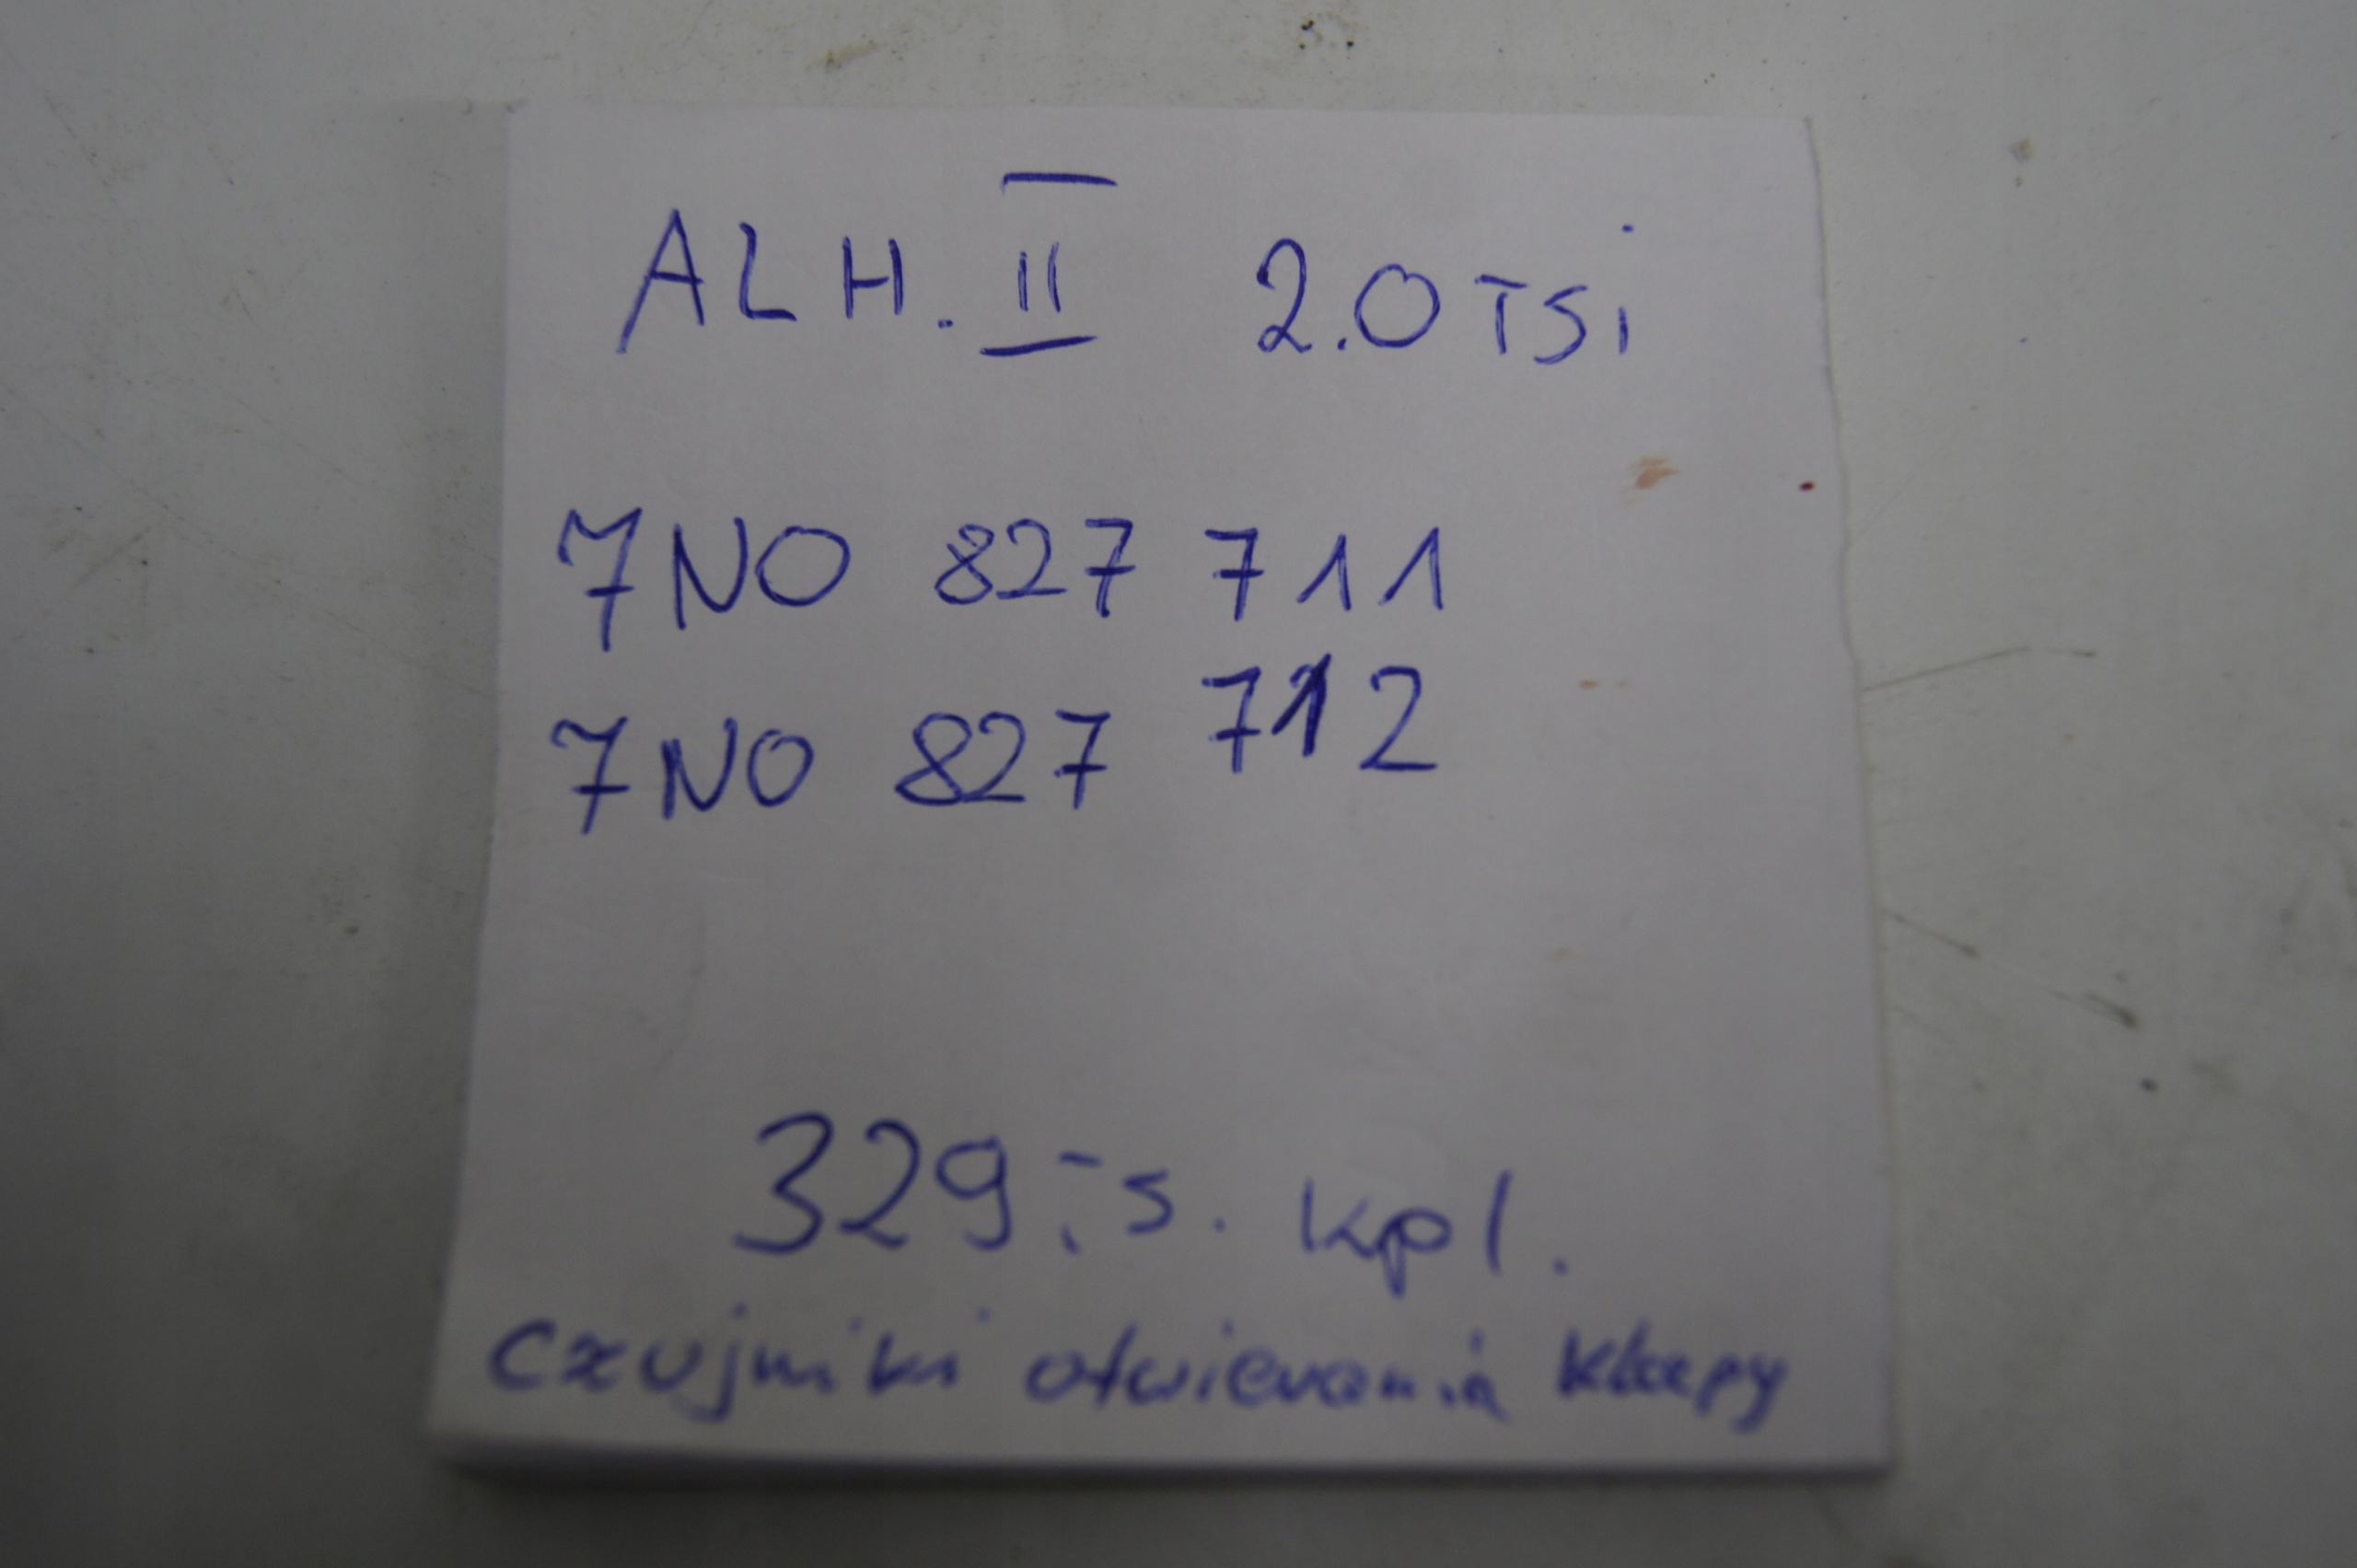 ALH. II 2.0 TSi
7NO 827 711
7NO 827 712
329,- s. kpl.
Czujniki otwierania klapy